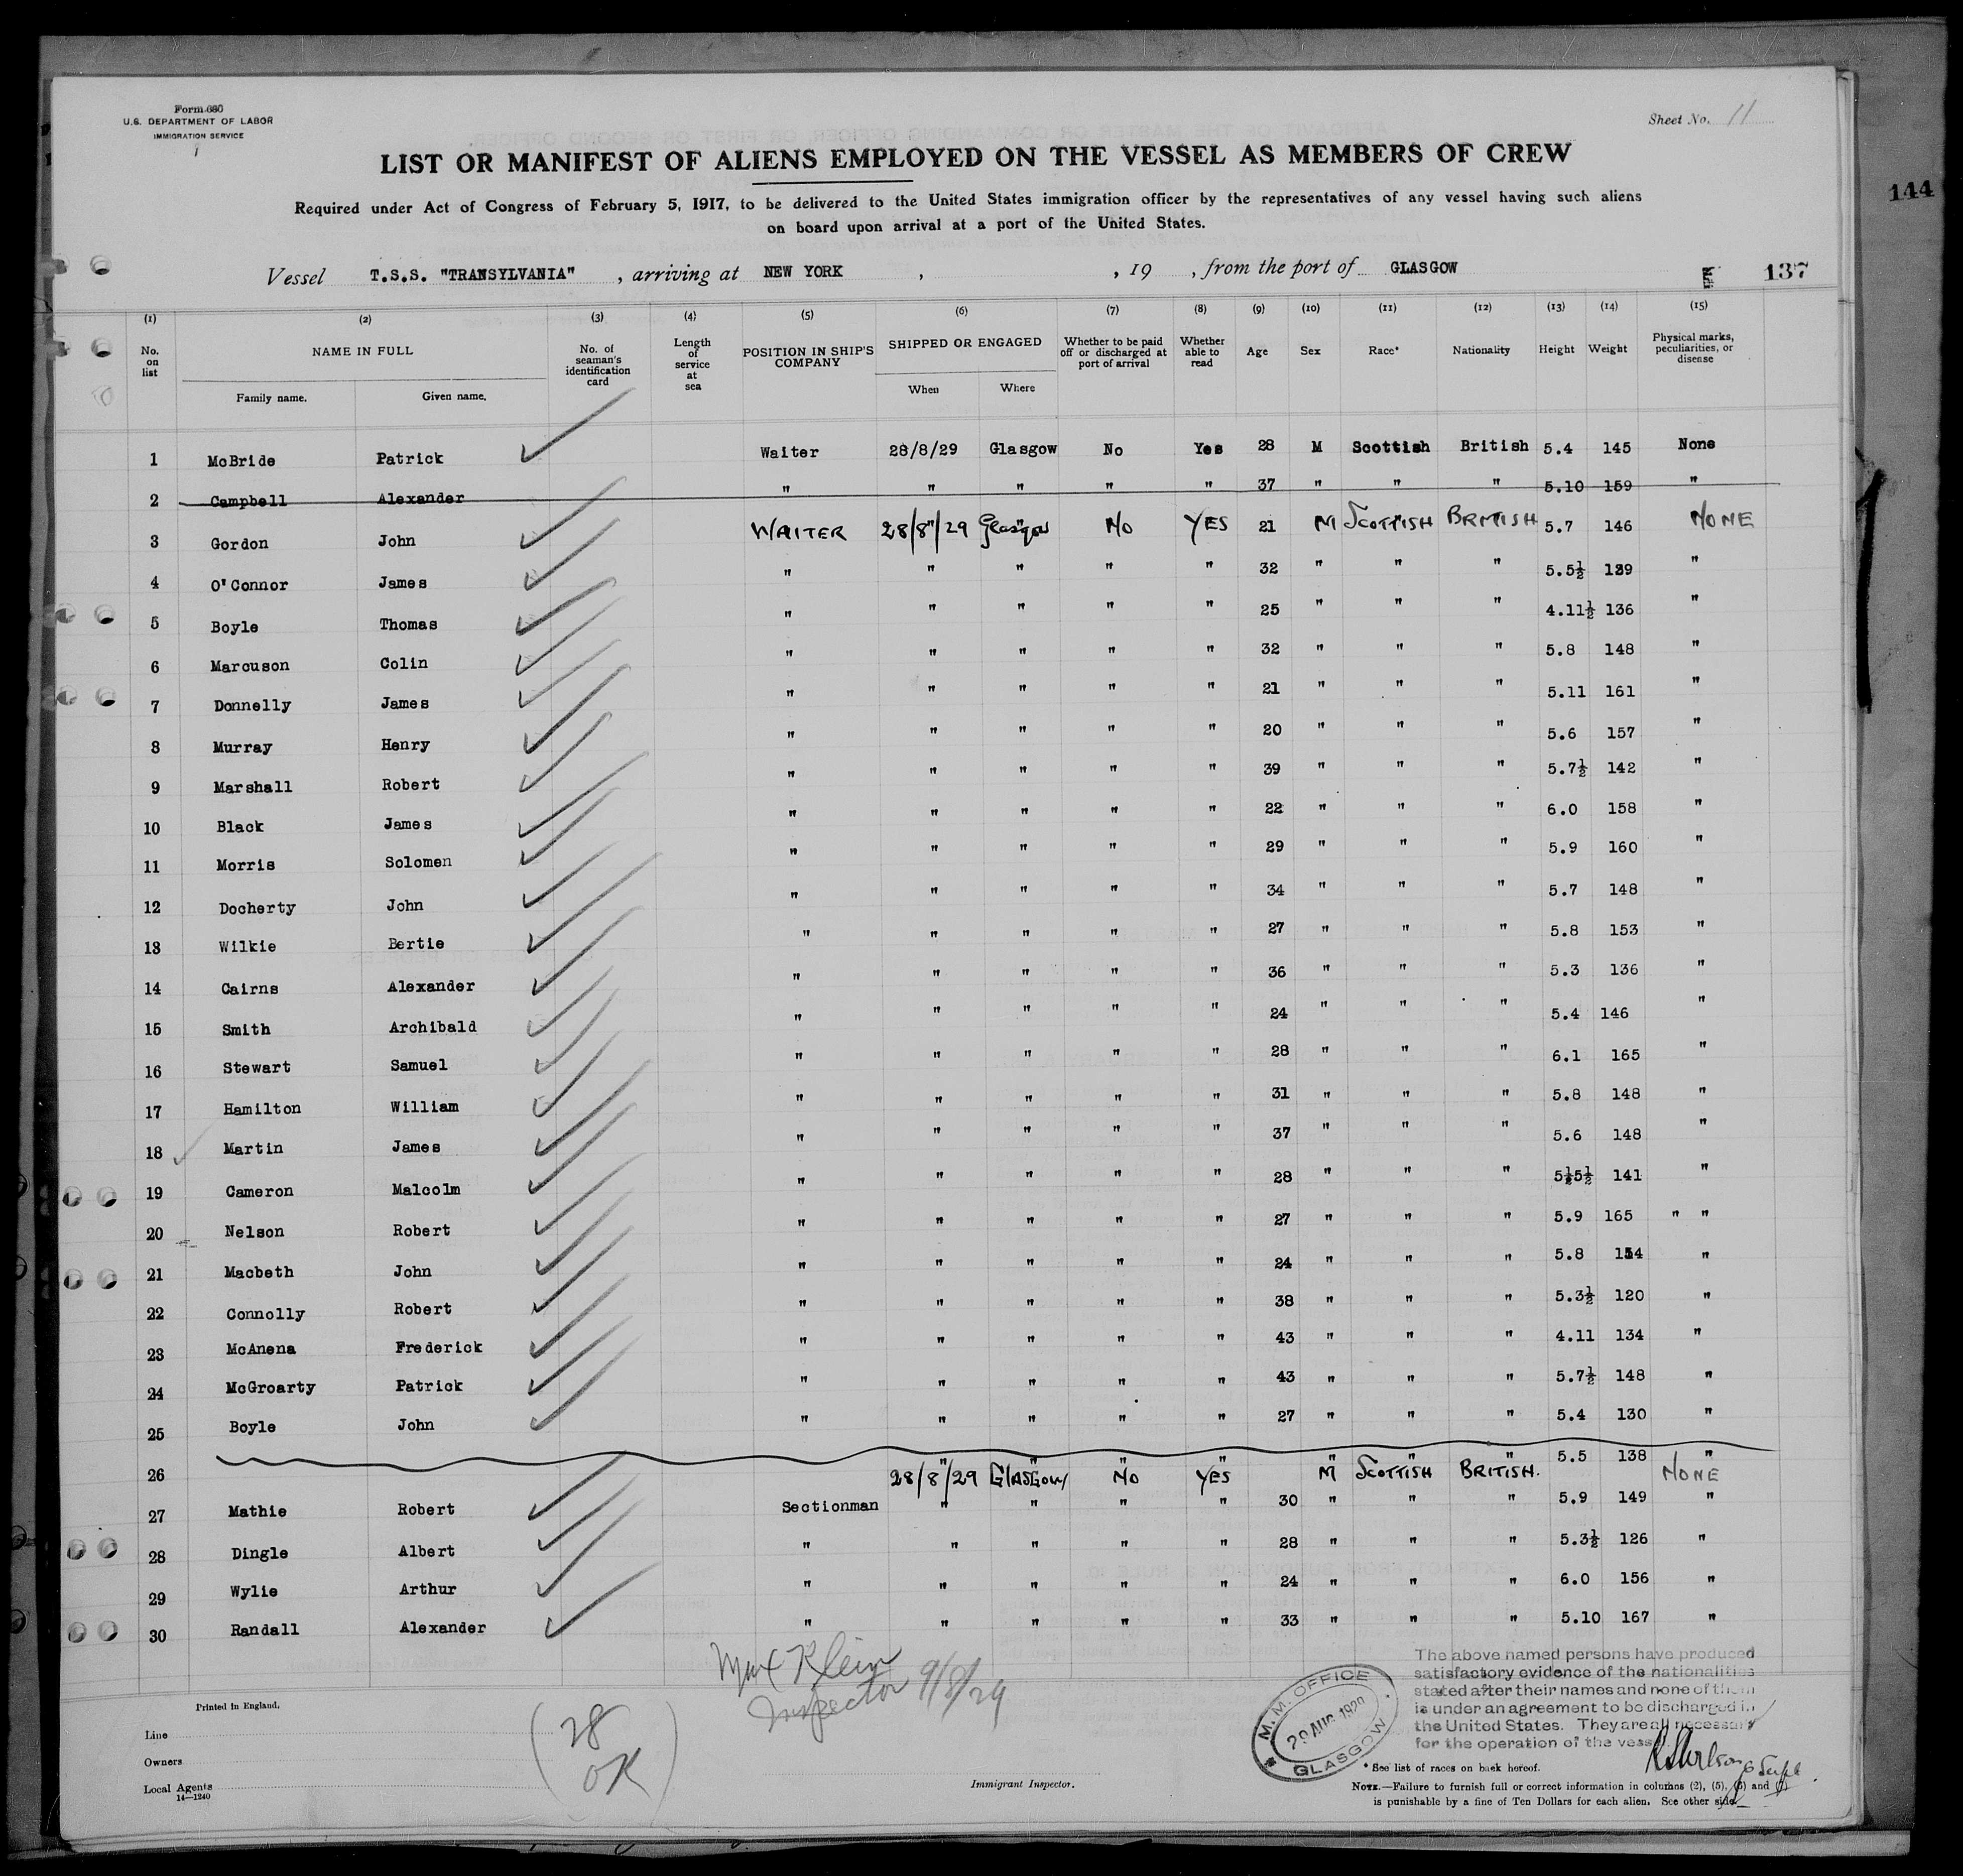 Form 680
U.S. DEPARTMENT OF LABOR
IMMIGRATION SERVICE
Sheet No. 11
LIST OR MANIFEST OF ALIENS EMPLOYED ON THE VESSEL AS MEMBERS OF CREW
144
Required under Act of Congress of February 5, 1917, to be delivered to the United States immigration officer by the representatives of any vessel having such aliens
on board upon arrival at a port of the United States.
Vessel T.S.S. "TRANSYLVANIA" , arriving at NEW YORK , , 19 , from the port of GLASGOW E 137
(1) (2) (3) (4) (5) (6) (7) (8) (9) (10) (11) (12) (13) (14) (15)
No. on list NAME IN FULL Family name. Given name. No. of seaman's identification card Length of service at sea POSITION IN SHIP'S COMPANY SHIPPED OR ENGAGED When Where Whether to be paid off or discharged at port of arrival Whether able to read Age Sex Race* Nationality Height Weight Physical marks, peculiarities, or disease
1 McBride Patrick Waiter 28/8/29 Glasgow No Yes 28 M Scottish British 5.4 145 None
2 Campbell Alexander " " " " " 37 " " " 5.10 159 "
3 Gordon John WAITER 28/8/29 Glasgow No YES 21 M SCOTTISH BRITISH 5.7 146 NONE
4 O'Connor James " " " " " 32 " " " 5.5½ 139 "
5 Boyle Thomas " " " " " 25 " " " 4.11½ 136 "
6 Marcuson Colin " " " " " 32 " " " 5.8 148 "
7 Donnelly James " " " " " 21 " " " 5.11 161 "
8 Murray Henry " " " " " 20 " " " 5.6 157 "
9 Marshall Robert " " " " " 39 " " " 5.7½ 142 "
10 Black James " " " " " 22 " " " 6.0 158 "
11 Morris Solomen " " " " " 29 " " " 5.9 160 "
12 Docherty John " " " " " 34 " " " 5.7 148 "
13 Wilkie Bertie " " " " " 27 " " " 5.8 153 "
14 Cairns Alexander " " " " " 36 " " " 5.3 136 "
15 Smith Archibald " " " " " 24 " " " 5.4 146 "
16 Stewart Samuel " " " " " 28 " " " 6.1 165 "
17 Hamilton William " " " " " 31 " " " 5.8 148 "
18 Martin James " " " " " 37 " " " 5.6 148 "
19 Cameron Malcolm " " " " " 28 " " " 5½5½ 141 "
20 Nelson Robert " " " " " 27 " " " 5.9 165 " "
21 Macbeth John " " " " " 24 " " " 5.8 "
22 Connolly Robert " " " " " 38 " " " 5.3½ 120 "
23 McAnena Frederick " " " " " 43 " " " 4.11 134 "
24 McGroarty Patrick " " " " " 43 " " " 5.7½ 148 "
25 Boyle John " " " " " 27 " " " 5.4 130 "
26 28/8/29 GLASGOW No YES M SCOTTISH BRITISH. 5.5 138 NONE
27 Mathie Robert Sectionman " " " " 30 " " " 5.9 149 "
28 Dingle Albert " " " " " 28 " " " 5.3½ 126 "
29 Wylie Arthur " " " " " 24 " " " 6.0 156 "
30 Randall Alexander " " " " " 33 " " " 5.10 167 "
Max Klein
Inspector 9/8/29
(28
OK)
M. M. OFFICE
29 AUG 1929
GLASGOW
The above named persons have produced
satisfactory evidence of the nationalities
stated after their names and none of them
is under an agreement to be discharged in
the United States. They are all necessary
for the operation of the vessel
Printed in England.
Line
Owners
Local Agents
14—1240
Immigrant Inspector.
* See list of races on back hereof.
NOTE.—Failure to furnish full or correct information in columns (2), (5), (6) and (7)
is punishable by a fine of Ten Dollars for each alien. See other side.